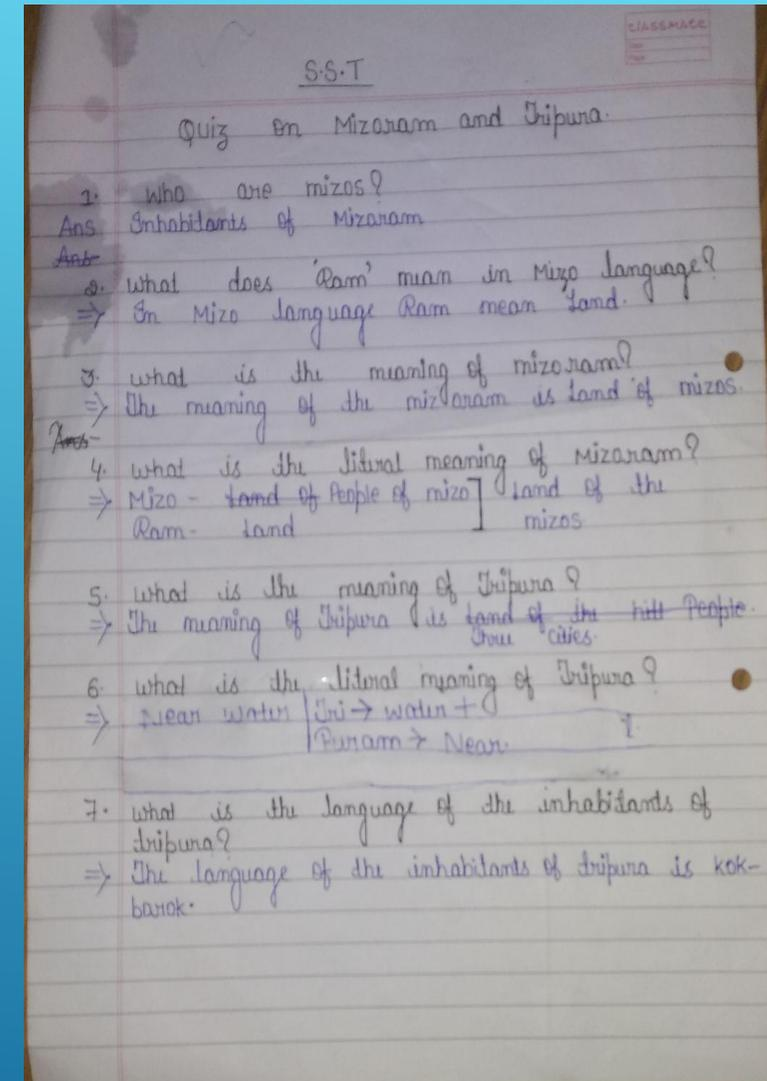 CLASSMATE
S.S.T
Quiz on Mizoram and Tripura.
1. Who are mizos?
Ans Inhabitants of Mizoram
Ans
2. What does 'Ram' mean in Mizo language?
⇒ In Mizo language Ram mean Land.
3. what is the meaning of mizoram?
⇒ The meaning of the mizoram is Land of mizos.
Ans-
4. what is the literal meaning of Mizoram?
⇒ Mizo - Land of People of mizo ] Land of the
Ram - Land mizos
5. what is the meaning of Tripura?
⇒ The meaning of Tripura is Land of the hill People.
Three cities.
6. what is the literal meaning of Tripura?
⇒ Near water | Tri → water +
Puram → Near.
7. what is the language of the inhabitants of
tripura?
⇒ The language of the inhabitants of tripura is kok-
barok.